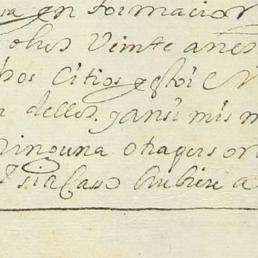 en formacion
ohos Veinte anes
hos Citios estoi
dellos. y ansi mismo
ninguna otra persor
si a Caso hubiere a